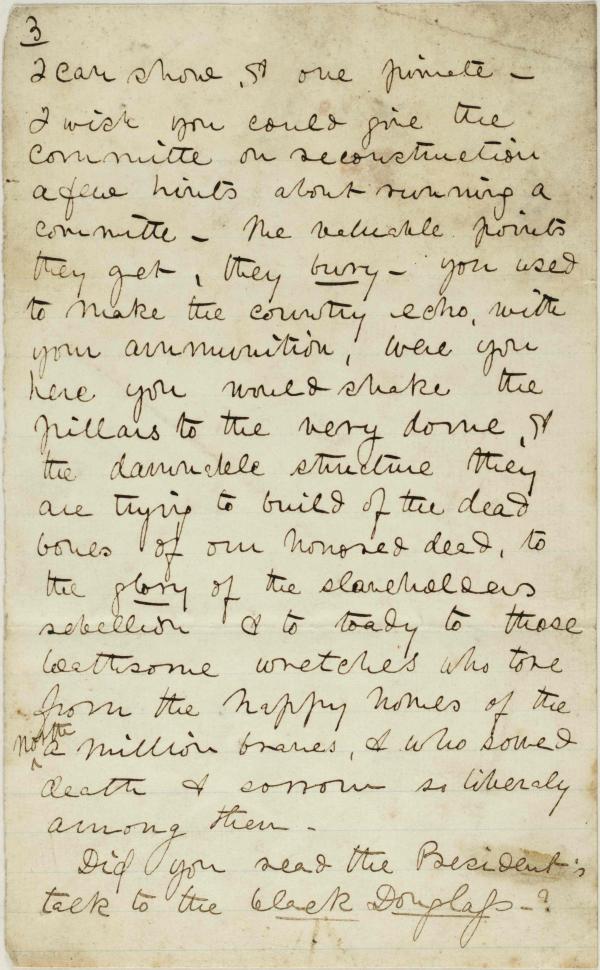 3
I can shove, & one private –
I wish you could give the
committe on reconstruction
a few hints about running a
committe – The valuable points
they get, they bury – you used
to make the country echo, with
your ammunition, were you
here you would shake the
pillars to the very dome, of
the damnable structure they
are trying to build of the dead
bones of our honored dead, to
the glory of the slaveholders
rebellion & to toady to those
loathsome wretches who tore
from the happy homes of the
north a million braves, & who sowed
death & sorrow so liberaly
among them –
Did you read the President's
talk to the black Douglass – ?